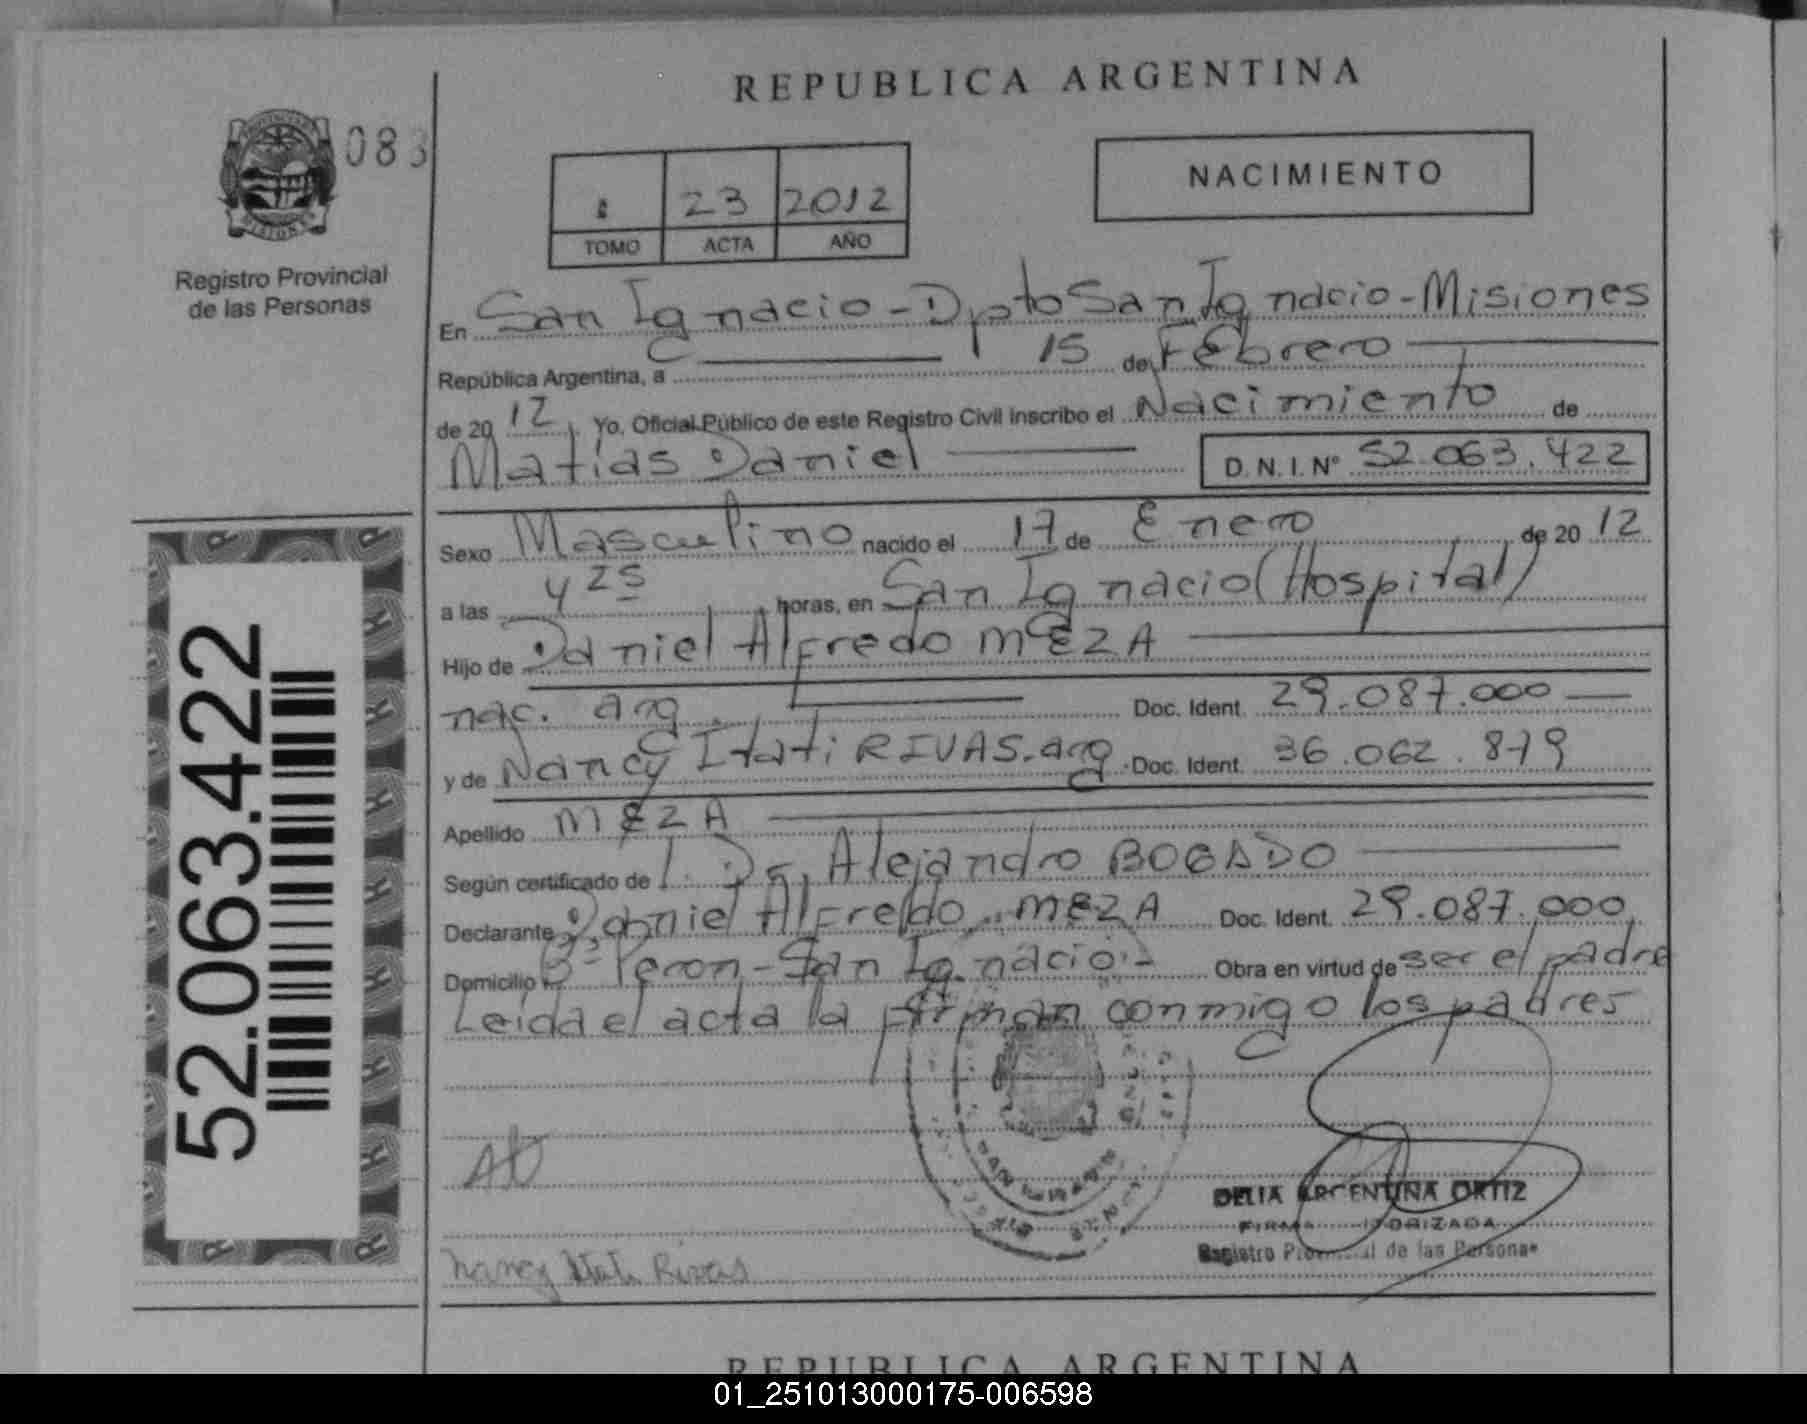 REPUBLICA ARGENTINA
083
NACIMIENTO
23 2012
TOMO ACTA AÑO
Registro Provincial
de las Personas
En San Ignacio - Dpto San Ignacio - Misiones
República Argentina, a 15 de FEbrero
de 2012. Yo, Oficial Público de este Registro Civil inscribo el Nacimiento de
Matías Daniel D.N.I.Nº 52.063.422
Sexo Masculino nacido el 17 de Enero de 2012
a las 4 25 horas, en San Ignacio (Hospital)
Hijo de Daniel Alfredo MEZA
nac. arg. Doc. Ident. 29.087.000
y de Nancy Itati RIVAS. arg. Doc. Ident. 36.062.879
Apellido MEZA
Según certificado del Dr. Alejandro BOGADO
Declarante Daniel Alfredo MEZA Doc. Ident. 29.087.000
Domicilio Bº Peron - San Ignacio.- Obra en virtud de ser el padre
Leida el acta la firman conmigo los padres
52.063.422
DELIA ARGENTINA ORTIZ
FIRMA AUTORIZADA
Registro Provincial de las Personas
Nancy Itati Rivas
REPUBLICA ARGENTINA
01_251013000175-006598